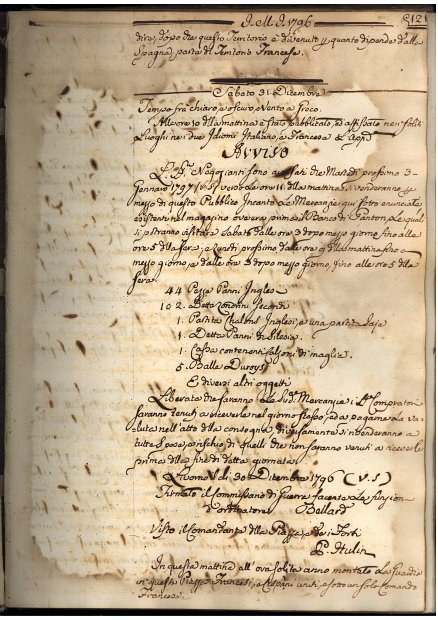 I.M.I. 1796
121
dire, dopo che questo Territorio è divenuto p quanto dipende dalla
Spagna, parte di Territorio Francese.
Sabato 31. Dicembre
Tempo frà chiaro, e oscuro, e Vento a
Alle ore 10 della mattina è stato pubblicato, ed affissato ne i soliti
Luoghi ne i due Idiomi Italiano, e Francese
Avviso
Negozianti sono avvisati che Martedì prossimo 3
Gennaro 1797 (V.S) verso le ore 11. della mattina, si venderanno p
mezzo di questo Pubblico Incanto Le Mercanzie qui sotto enunciate
esistenti nel magazzino ove era prima il Banco di le quali
si potranno visitare Sabato dalle ore 3 dopo mezzo giorno fino alle
ore 5 della sera, e Lunedì prossimo dalle ore 9 della mattina fino a
mezzo giorno, e dalle ore 3 dopo mezzo giorno, fino alle ore 5 della
sera.
44 Pezze Panni Inglesi
102. Dette Londrini Secondi
1. Partita Chalons Inglesi, e una partita Saje
1. Detta Panni di Slesia.
1. Cassa contenente Calzoni di maglia.
5. Balle Duroys
E diversi altri oggetti
Liberate che saranno Le Sud.e Mercanzie i Compratori
saranno tenuti a riceverle nel giorno stesso, ed a pagarne La va-
luta nell'atto della consegna, diversamente s'intenderanno a
tutte spese, e rischio di quelli che non saranno venuti a riceverle
prima della fine di detta giornata.
Livorno li 30 Dicembre 1796 (V.S)
Firmato il Commissario di Guerra facente La funzion
d'ordinatore Bellard
Visto il Comandante della Piazza, e de i Forti
P. Hulin
In questa mattina all'ora solita anno montato La Guardia
in questa Piazza Francesi, e uniti, e sotto un solo Comando
Francese.